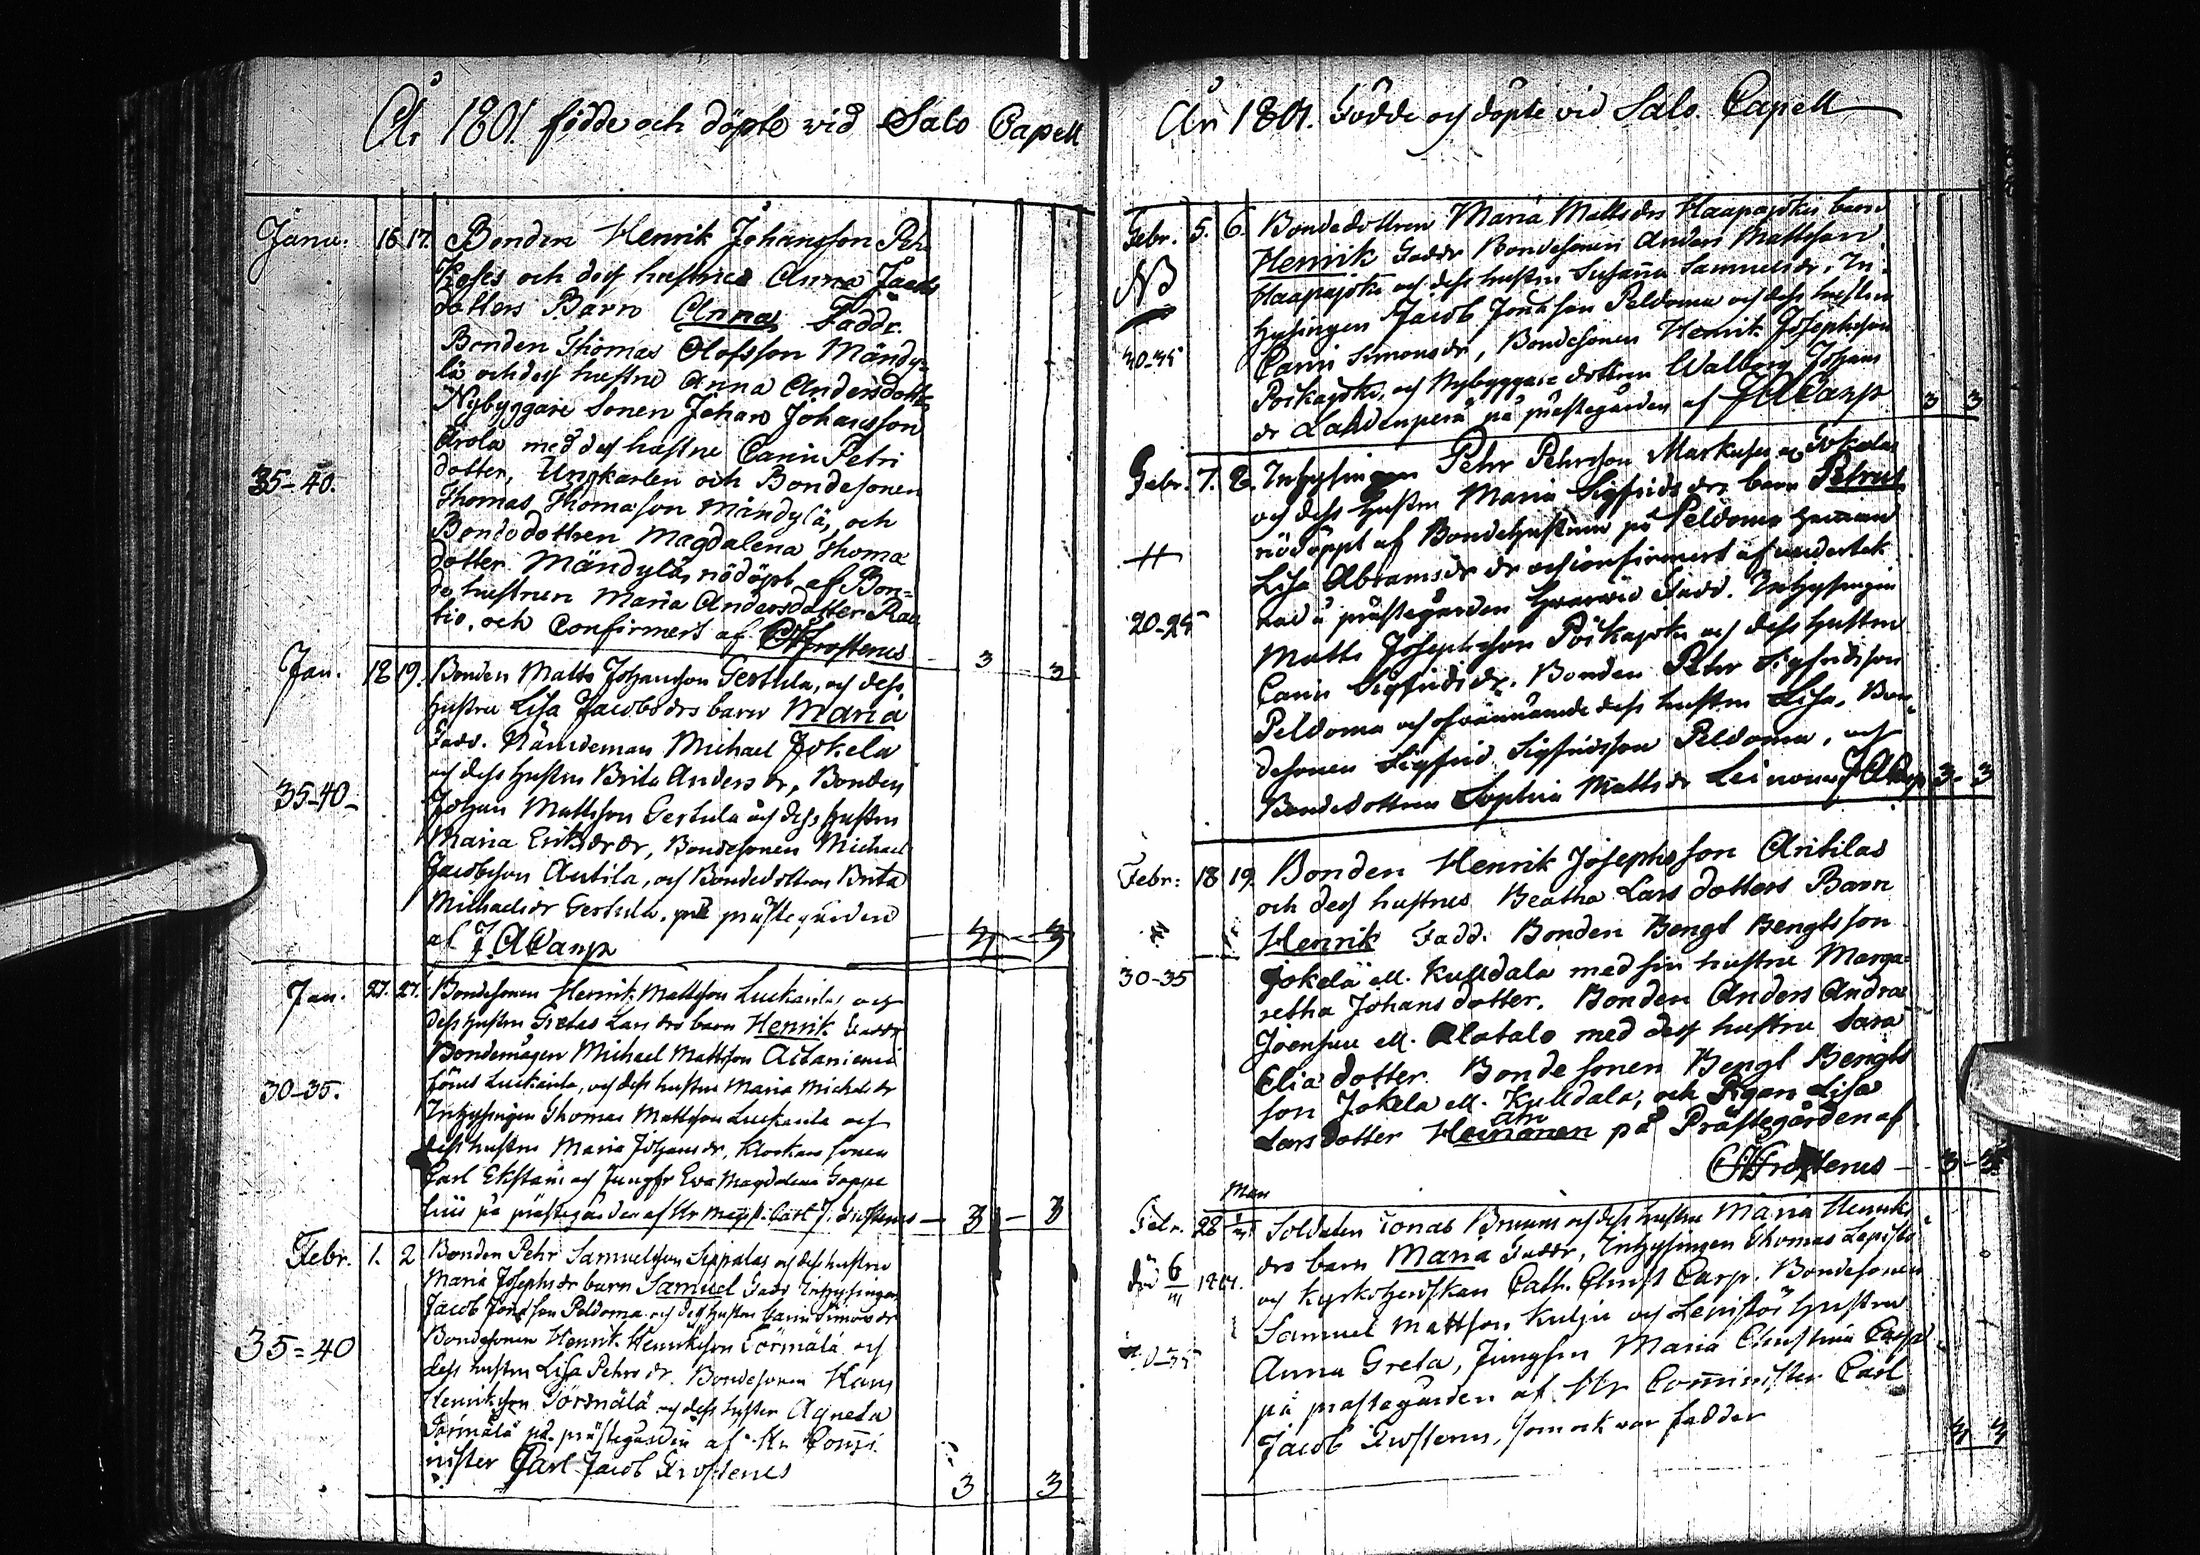 År 1801. födde och döpte vid Salo Capell
Janu. 16 17. Bonden Henrik Johansson Peh
och dess hustrus Anna Jacobs
dotters Barn Anna, Faddr.
Bonden Thomas Olofsson Mändy-
lä och dess hustru Anna Andersdotter
Nybyggare Sonen Johan Johansson
Arola med dess hustru Carin Petri
35-40. dotter, Ungkarlen och Bondesonen
Thomas Thomasson Mändylä, och
Bondedottren Magdalena Thoma
dotter Mändylä, nöddöpt af Bon-
de hustrun Maria Andersdotter Rau
tio, och Confirmert af CJFrosterus 3 3
Jan. 18 19. Bonden Matts Johansson Gertula, och dess
hustru Lisa Jacobsdrs barn Maria
Fadd. Nämdeman Michael Jokela
och dess hustru Brita Anders dr, Bonden
35-40- Johan Mattsson Gertula och dess hustru
Maria Eriksdr, Bondesonen Michael
Jacobsson Antila, och Bondedottren Brita
Michaelsdr Gertula. på prästegården
af J ACarp 3 3
Jan. 27. 27. Bondesonen Henrik Mattsson Luckarilas och
dess hustru Gretas Lars drs barn Henrik Faddr
Bondemågen Michael Mattsson
Luckarila, och dess hustru Maria Michels dr
30-35. Inhysingen Thomas Mattsson Luckarila och
dess hustru Maria Johans dr, Klockare sonen
Carl Ekstam och Jungfr Ewa Magdalena Goppe
lius på prästegården af Hr Carl J. Frosterus 3 3
Febr. 1. 2 Bonden Pehr Samuelsson Sippalas och dess hustru
Maria Josephs dr barn Samuel Fadd Inhysingen
Jacob Jonasson Peldoma och dess hustru Carin Simons dr
35=40 Bondesonen Henrik Henriksson Törmälä och
dess hustru Lisa Pehrs dr. Bondesonen Hans
Henriksson Törmälä och dess hustru Agneta
Törmälä på prästegården af Hr Com̄i
nister Carl Jacob Frosterus 3 3
År 1801. Födde och döpte vid Salo Capell
Febr. 5. 6. Bondedottren Maria Matts drs Haapajokis barn
NB Henrik Faddr Bondesonen Anders Mattsson
Haapajoki och dess hustru Susanna Samuelsdr, In-
hysingen Jacob Jonasson Peldoma och dess hustru
30-35 Carin Simonsdr, Bondesonen Henrik Josephsson
Poikajoki, och Nybyggare dottren Walborg Johans
dr Lahdenperä på prästegården af J ACarp 3 3
Febr. 7. 8. Inhysingen Pehr Pehrsson Markuses Jokelas
och dess hustru Maria Sigfrids drs barn Petrus
nöddöpt af Bondehustrun på Peldoma
Lisa Abrams dr och confirmert af underteck
20-25 nad i prästegården hwarvid Fadd. Inhysingen
Matts Josephsson Poikajoki och dess hustru
Carin Sigfrids dr. Bonden Pehr Sigfridsson
Peldoma och ofvannämde dess hustru Lisa, Bon-
desonen Sigfrid Sigfridsson Peldoma, och
Bondedottren Sophia Matts dr Leinonen J ACarp 3 3
Febr: 18 19. Bonden Henrik Josephsson Antilas
och dess hustrus Beatha Lars dotters Barn
Henrik Fadd. Bonden Bengt Bengtsson
30-35 Jokelä ell. Kulldala med sin hustru Marga-
retha Johans dotter. Bonden Anders Andra
Joensuu ell. Alatalo med dess hustru Sara
Elia dotter. Bonde sonen Bengt Bengts
son Jokela ell. Kulldala, och Pigan Lisa
Lars dotter Heinänen på Prästegården af
CJFrosterus 3 3
Febr. 28 Mars 1 Soldaten Jonas Bruuns och dess hustru Maria Henriks
död 6/III 1801. drs barn Maria Faddr, Inhysingen Thomas Lepistö
och Kyrkoherdskan Cath. Christ Carp. Bondesonen
Samuel Mattsson Kulju och Lepistös hustru
Anna Greta, Jungfrun Maria Christina Carp
på prästegården af Hr Com̄inister Carl
Jacob Frosterus, som ock war fadder 3 3